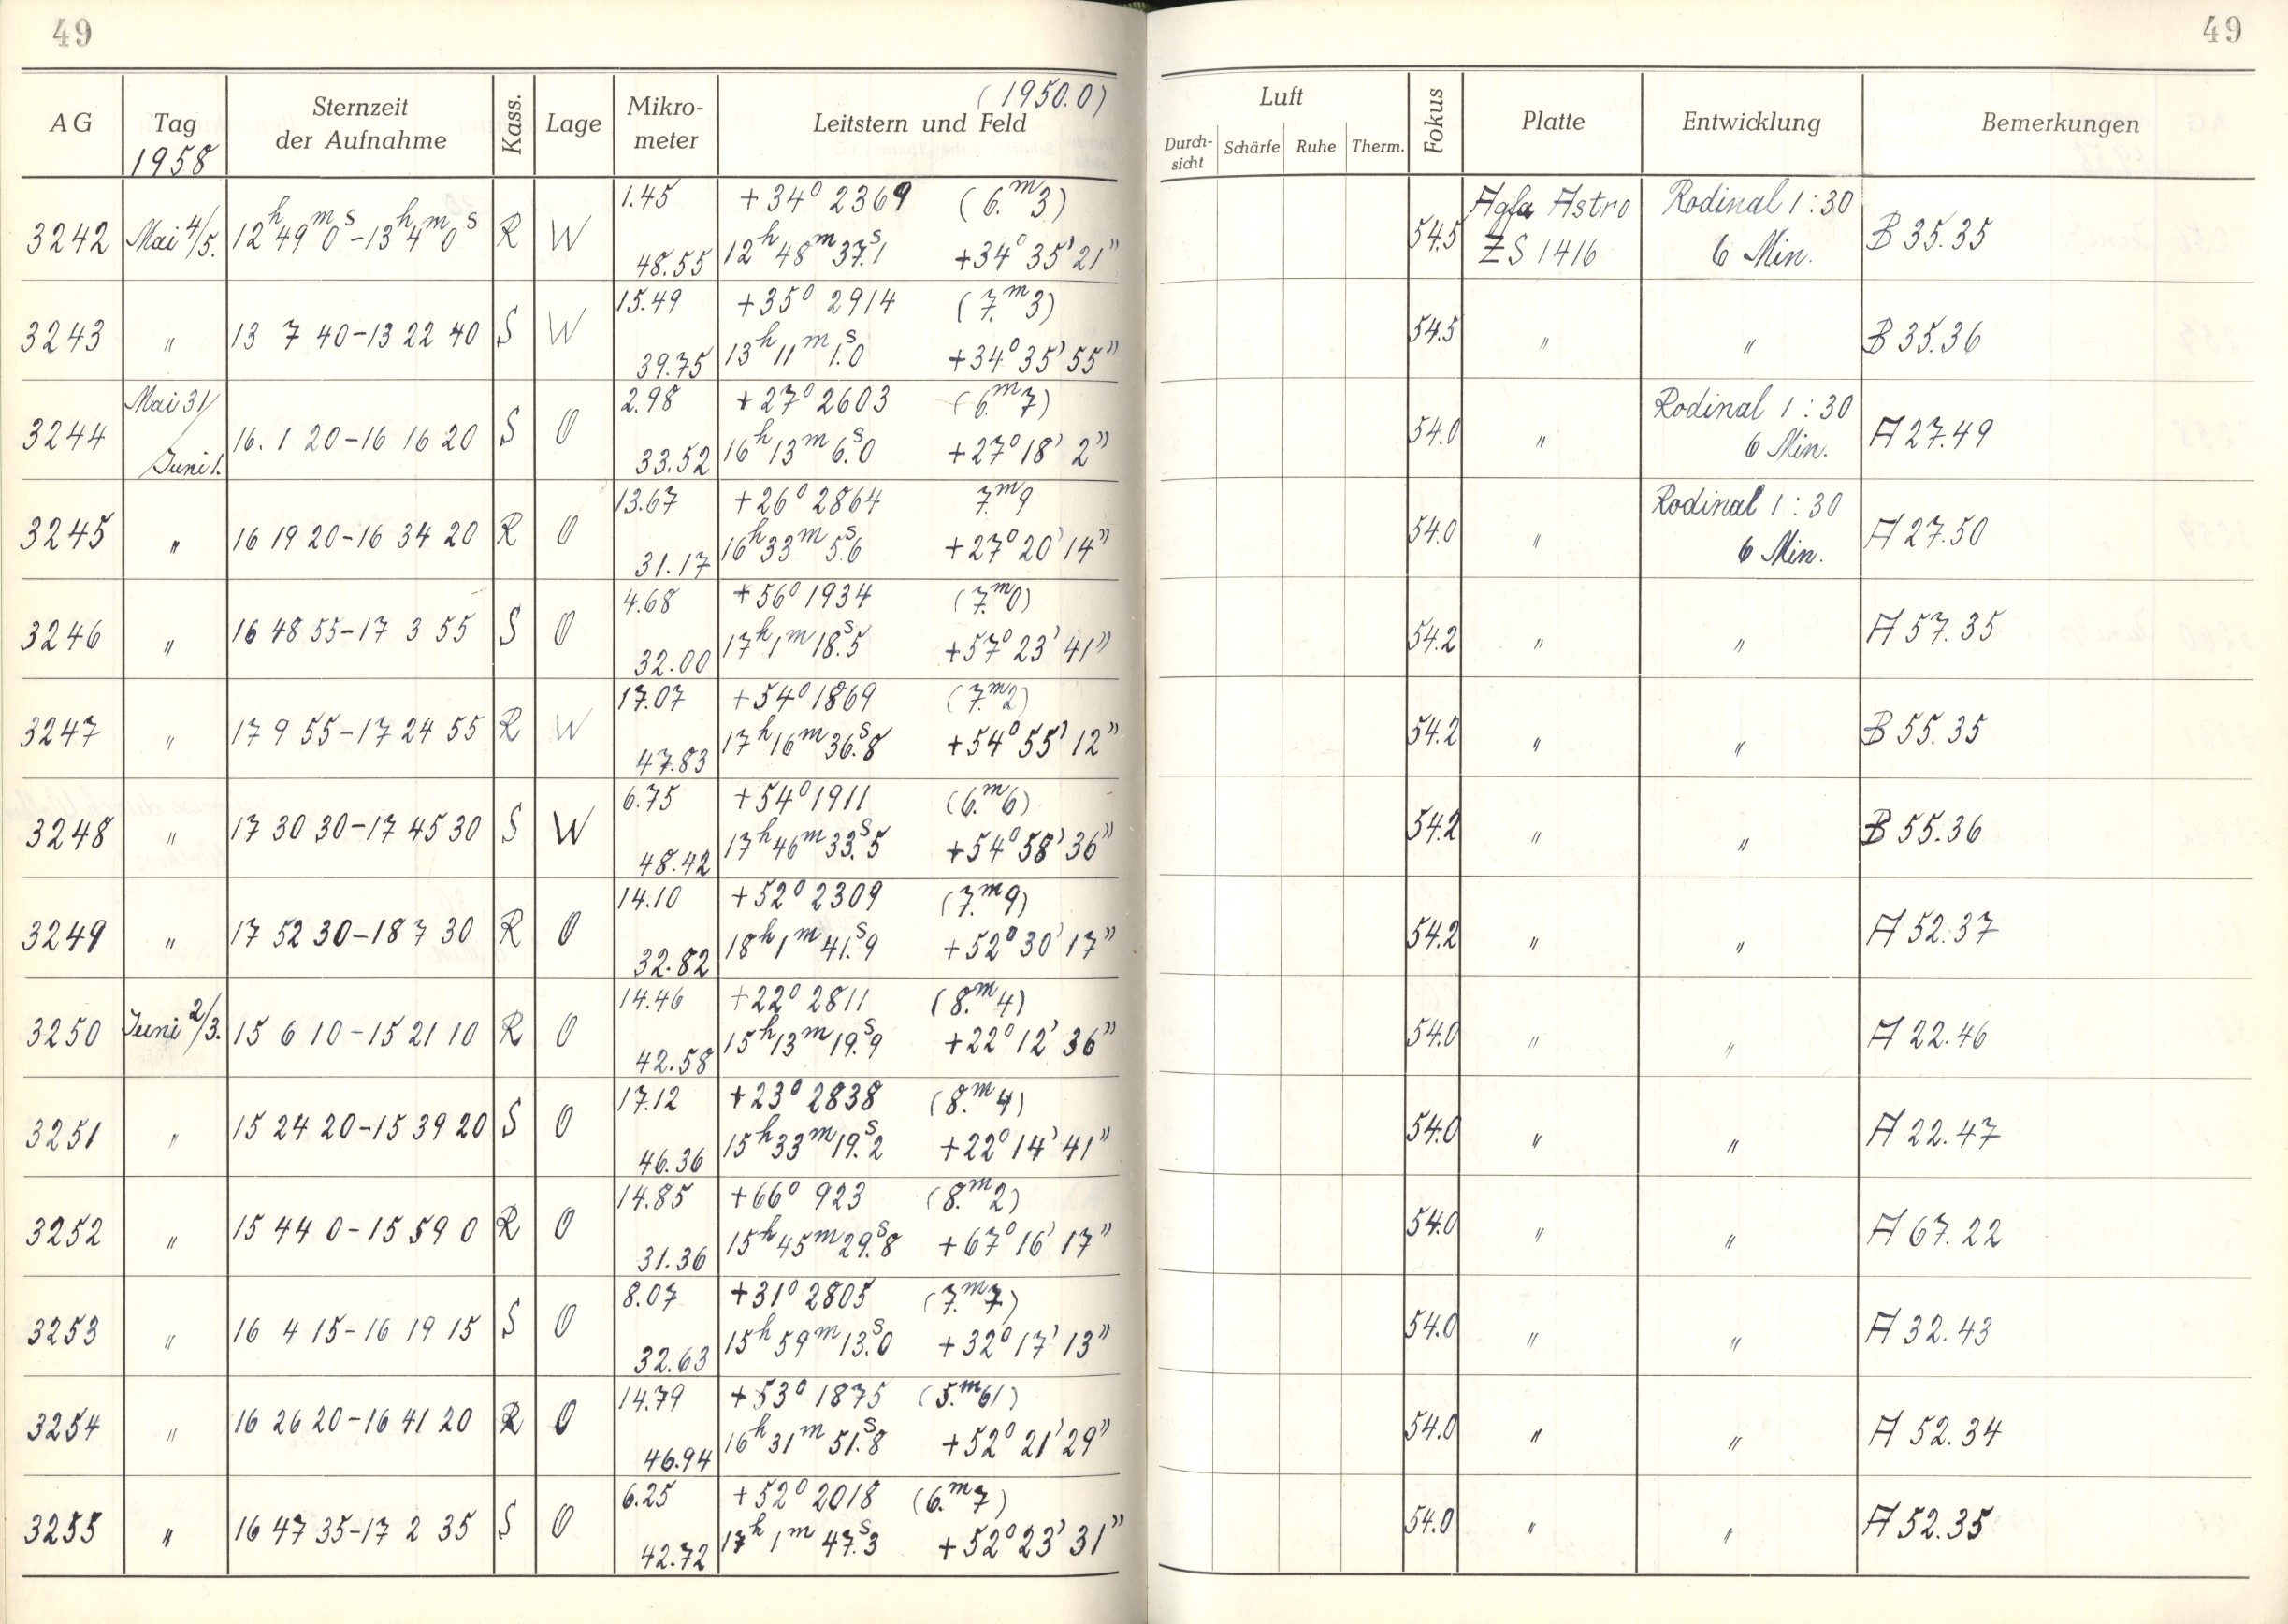 49 49
(1950.0)
AG Tag Sternzeit der Aufnahme Kass. Lage Mikro-meter Leitstern und Feld Luft Fokus Platte Entwicklung Bemerkungen
1958 Durch-sicht Schärfe Ruhe Therm.
1.45 +34° 2369 (6.ᵐ3) Agfa Astro Rodinal 1:30
3242 Mai 4/5. 12ʰ49ᵐ0ˢ-13ʰ4ᵐ0ˢ R W 54.5 B 35.35
48.55 12ʰ48ᵐ37.ˢ1 +34°35'21" ZS 1416 6 Min.
15.49 +35° 2914 (7.ᵐ3)
3243 " 13 7 40-13 22 40 S W 54.5 " " B 35.36
39.75 13ʰ11ᵐ1.ˢ0 +34°35'55"
Mai 31/ 2.98 +27° 2603 (6.ᵐ7) Rodinal 1:30
3244 16. 1 20-16 16 20 S O 54.0 " A 27.49
Juni 1. 33.52 16ʰ13ᵐ6.ˢ0 +27°18'2" 6 Min.
13.67 +26° 2864 7.ᵐ9 Rodinal 1:30
3245 " 16 19 20-16 34 20 R O 54.0 " A 27.50
31.17 16ʰ33ᵐ5.ˢ6 +27°20'14" 6 Min.
4.68 +56° 1934 (7.ᵐ0)
3246 " 16 48 55-17 3 55 S O 54.2 " " A 57.35
32.00 17ʰ1ᵐ18.ˢ5 +57°23'41"
17.07 +54° 1869 (7.ᵐ2)
3247 " 17 9 55-17 24 55 R W 54.2 " " B 55.35
47.83 17ʰ16ᵐ36.ˢ8 +54°55'12"
6.75 +54° 1911 (6.ᵐ6)
3248 " 17 30 30-17 45 30 S W 54.2 " " B 55.36
48.42 17ʰ46ᵐ33.ˢ5 +54°58'36"
14.10 +52° 2309 (7.ᵐ9)
3249 " 17 52 30-18 7 30 R O 54.2 " " A 52.37
32.82 18ʰ1ᵐ41.ˢ9 +52°30'17"
14.46 +22° 2811 (8.ᵐ4)
3250 Juni 2/3. 15 6 10-15 21 10 R O 54.0 " " A 22.46
42.58 15ʰ13ᵐ19.ˢ9 +22°12'36"
17.12 +23° 2838 (8.ᵐ4)
3251 " 15 24 20-15 39 20 S O 54.0 " " A 22.47
46.36 15ʰ33ᵐ19.ˢ2 +22°14'41"
14.85 +66° 923 (8.ᵐ2)
3252 " 15 44 0-15 59 0 R O 54.0 " " A 67.22
31.36 15ʰ45ᵐ29.ˢ8 +67°16'17"
8.07 +31° 2805 (7.ᵐ7)
3253 " 16 4 15-16 19 15 S O 54.0 " " A 32.43
32.63 15ʰ59ᵐ13.ˢ0 +32°17'13"
14.79 +53° 1875 (5.ᵐ61)
3254 " 16 26 20-16 41 20 R O 54.0 " " A 52.34
46.94 16ʰ31ᵐ51.ˢ8 +52°21'29"
6.25 +52° 2018 (6.ᵐ7)
3255 " 16 47 35-17 2 35 S O 54.0 " " A 52.35
42.72 17ʰ1ᵐ47.ˢ3 +52°23'31"